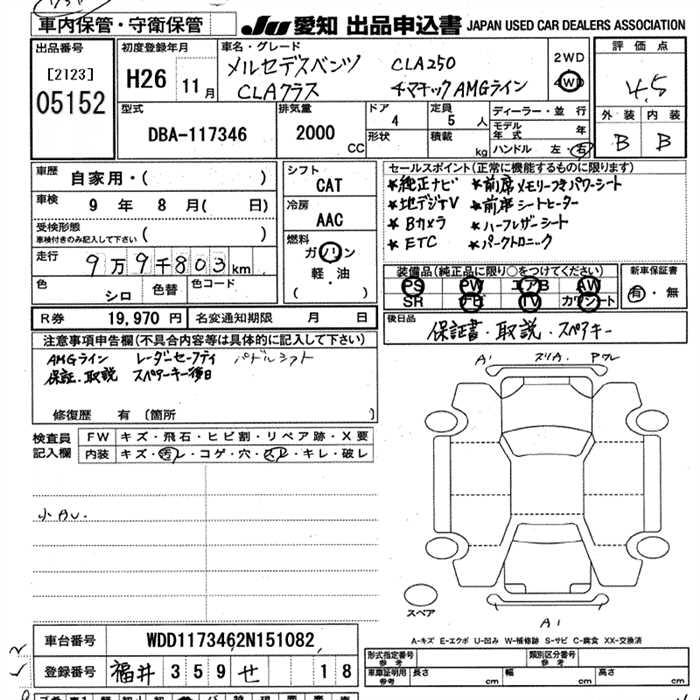 車内保管・守衛保管
JU 愛知 出品申込書 JAPAN USED CAR DEALERS ASSOCIATION
出品番号
[2123]
05152
初度登録年月
H26 11月
車名・グレード
メルセデスベンツ CLA250
CLAクラス 4マチック AMGライン
2WD
4WD
評価点
4.5
外装 内装
B B
型式
DBA-117346
排気量
2000 CC
ドア
4
形状
定員
5人
積載 kg
ディーラー・並行
モデル年式 年
ハンドル 左 右
車歴
自家用・( )
車検
9年 8月( 日)
受検形態
車検付きのみ記入して下さい ( )
走行
9万9千803km
色 シロ 色替 色コード
シフト
CAT
冷房
AAC
燃料
ガソリン
軽・油
( )
セールスポイント(正常に機能するものに限ります)
*純正ナビ *前席メモリーつきパワーシート
*地デジTV *前席シートヒーター
*Bカメラ *ハーフレザーシート
*ETC *パークトロニック
装備品(純正品に限り○をつけてください)
PS PW エアB AW
SR FB TV カワシート
新車保証書
有・無
R券 19,970円 名変通知期限 月 日
後日品
保証書・取説・スペアキー
注意事項申告欄(不具合内容等は具体的に記入して下さい)
AMGライン レーダーセーフティ パドルシフト
保証・取説 スペアーキー後日
修復歴 有 〔箇所 〕
検査員記入欄
FW キズ・飛石・ヒビ割・リペア跡・X要
内装 キズ・汚レ・コゲ・穴・スレ・キレ・破レ
小AU.
A1 スリA. Pクレ
スペア
A1
A-キズ E-エクボ U-凹み W-補修跡 S-サビ C-腐食 XX-交換済
車台番号 WDD1173462N151082
登録番号 福井 359 せ 18
形式指定番号 参考
類別区分番号 参考
車庫証明用 参考 長さ cm 幅 cm 高さ cm